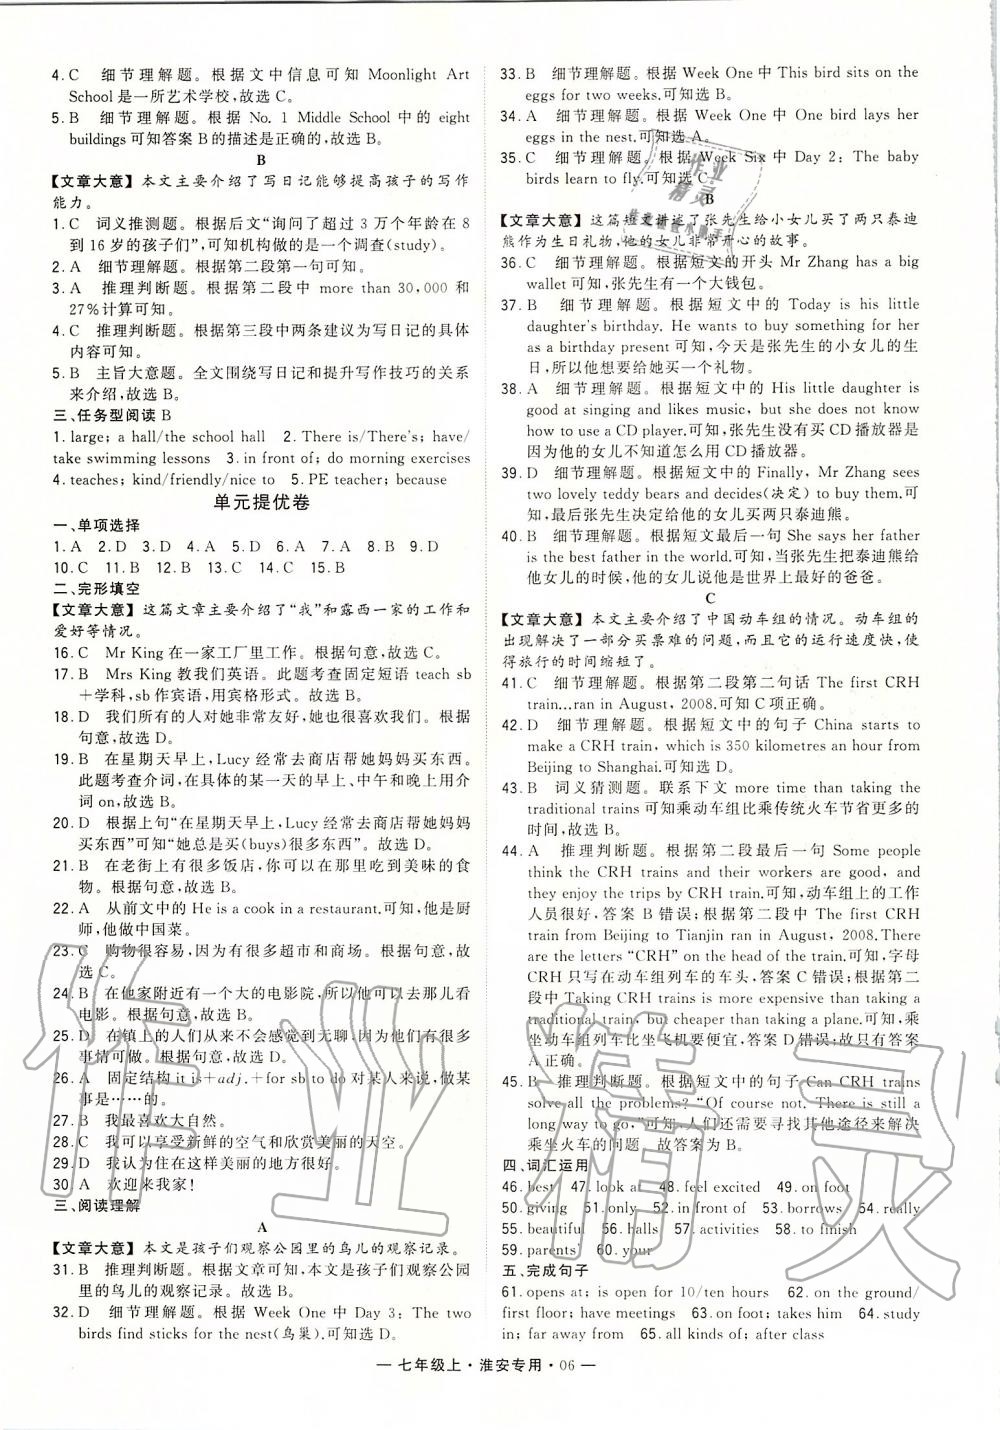 4. C　细节理解题。根据文中信息可知 Moonlight Art
School 是一所艺术学校,故选 C。
5. B　细节理解题。根据 No. 1 Middle School 中的 eight
buildings 可知答案 B 的描述是正确的,故选 B。
B
【文章大意】本文主要介绍了写日记能够提高孩子的写作
能力。
1. C　词义推测题。根据后文“询问了超过 3 万个年龄在 8
到 16 岁的孩子们”,可知机构做的是一个调查(study)。
2. A　细节理解题。根据第二段第一句可知。
3. A　推理判断题。根据第二段中 more than 30,000 和
27%计算可知。
4. C　推理判断题。根据第三段中两条建议为写日记的具体
内容可知。
5. B　主旨大意题。全文围绕写日记和提升写作技巧的关系
来介绍,故选 B。
三、任务型阅读 B
1. large; a hall/the school hall　2. There is/There's; have/
take swimming lessons　3. in front of; do morning exercises
4. teaches; kind/friendly/nice to　5. PE teacher; because
单元提优卷
一、单项选择
1. A　2. D　3. D　4. A　5. D　6. C　7. A　8. B　9. D
10. C　11. B　12. B　13. C　14. C　15. B
二、完形填空
【文章大意】这篇文章主要介绍了“我”和露西一家的工作和
爱好等情况。
16. C　Mr King 在一家工厂里工作。根据句意,故选 C。
17. B　Mrs King 教我们英语。此题考查固定短语 teach sb
+学科,sb 作宾语,用宾格形式。故选 B。
18. D　我们所有的人对她非常友好,她也很喜欢我们。根据
句意,故选 D。
19. B　在星期天早上,Lucy 经常去商店帮她妈妈买东西。
此题考查介词,在具体的某一天的早上、中午和晚上用介
词 on,故选 B。
20. D　根据上句“在星期天早上,Lucy 经常去商店帮她妈妈
买东西”可知“她总是买(buys)很多东西”。故选 D。
21. B　在老街上有很多饭店,你可以在那里吃到美味的食
物。根据句意,故选 B。
22. A　从前文中的 He is a cook in a restaurant.可知,他是厨
师,他做中国菜。
23. C　购物很容易,因为有很多超市和商场。根据句意,故
选 C。
24. B　在他家附近有一个大的电影院,所以他可以去那儿看
电影。根据句意,故选 B。
25. D　在镇上的人们从来不会感觉到无聊,因为有很多
事情可做。根据句意,故选 D。
26. A　固定结构 it is+adj.+for sb to do 对某人来说,做某
事是……的。
27. B　我最喜欢大自然。
28. C　我可以享受新鲜的空气和欣赏美丽的天空。
29. D　我认为住在这样美丽的地方很好。
30. A　欢迎来我家!
三、阅读理解
A
【文章大意】本文是孩子们观察公园里的鸟儿的观察记录。
31. B　推理判断题。根据文章可知,本文是孩子们观察公园
里的鸟儿的观察记录。故选 B。
32. D　细节理解题。根据 Week One 中 Day 3: The two
birds find sticks for the nest(鸟巢).可知选 D。
33. B　细节理解题。根据 Week One 中 This bird sits on the
eggs for two weeks.可知选 B。
34. A　细节理解题。根据 Week One 中 One bird lays her
eggs in the nest.可知选 A。
35. C　细节理解题。根据 Week Six 中 Day 2: The baby
birds learn to fly.可知选 C。
B
【文章大意】这篇短文讲述了张先生给小女儿买了两只泰迪
熊作为生日礼物,他的女儿非常开心的故事。
36. C　细节理解题。根据短文的开头 Mr Zhang has a big
wallet 可知,张先生有一个大钱包。
37. B　细节理解题。根据短文中的 Today is his little
daughter's birthday. He wants to buy something for her
as a birthday present 可知,今天是张先生的小女儿的生
日,所以他想要给她买一个礼物。
38. A　细节理解题。根据短文中的 His little daughter is
good at singing and likes music, but she does not know
how to use a CD player.可知,张先生没有买 CD 播放器是
因为他的女儿不知道怎么用 CD 播放器。
39. D　细节理解题。根据短文中的 Finally, Mr Zhang sees
two lovely teddy bears and decides(决定) to buy them.可
知,最后张先生决定给他的女儿买两只泰迪熊。
40. B　细节理解题。根据短文最后一句 She says her father
is the best father in the world.可知,当张先生把泰迪熊给
他女儿的时候,他的女儿说他是世界上最好的爸爸。
C
【文章大意】本文主要介绍了中国动车组的情况。动车组的
出现解决了一部分买票难的问题,而且它的运行速度快,使
得旅行的时间缩短了。
41. C　细节理解题。根据第二段第二句话 The first CRH
train...ran in August, 2008.可知 C 项正确。
42. D　细节理解题。根据短文中的句子 China starts to
make a CRH train, which is 350 kilometres an hour from
Beijing to Shanghai.可知选 D。
43. B　词义猜测题。联系下文 more time than taking the
traditional trains 可知乘动车组比乘传统火车节省更多的
时间,故选 B。
44. A　推理判断题。根据第二段最后一句 Some people
think the CRH trains and their workers are good, and
they enjoy the trips by CRH train.可知,动车组上的工作
人员很好,答案 B 错误;根据第二段中 The first CRH
train from Beijing to Tianjin ran in August, 2008.There
are the letters “CRH” on the head of the train.可知,字母
CRH 只写在动车组列车的车头,答案 C 错误;根据第二
段中 Taking CRH trains is more expensive than taking a
traditional train, but cheaper than taking a plane.可知,乘
坐动车组列车比坐飞机要便宜,答案 D 错误;故选择答案
A 正确。
45. B　推理判断题。根据短文中的句子 Can CRH trains
solve all the problems? “Of course not. There is still a
long way to go”可知,人们还需要寻找其他途径来解决
乘坐火车的问题。故答案为 B。
四、词汇运用
46. best　47. look at　48. feel excited　49. on foot
50. giving　51. only　52. in front of　53. borrows　54. really
55. beautiful　56. halls　57. activities　58. to finish
59. parents'　60. your
五、完成句子
61. opens at; is open for 10/ten hours　62. on the ground/
first floor; have meetings　63. on foot; takes him　64. study
in; far away from　65. all kinds of; after class
— 七年级上·淮安专用·06 —
作业
精灵
作业精灵